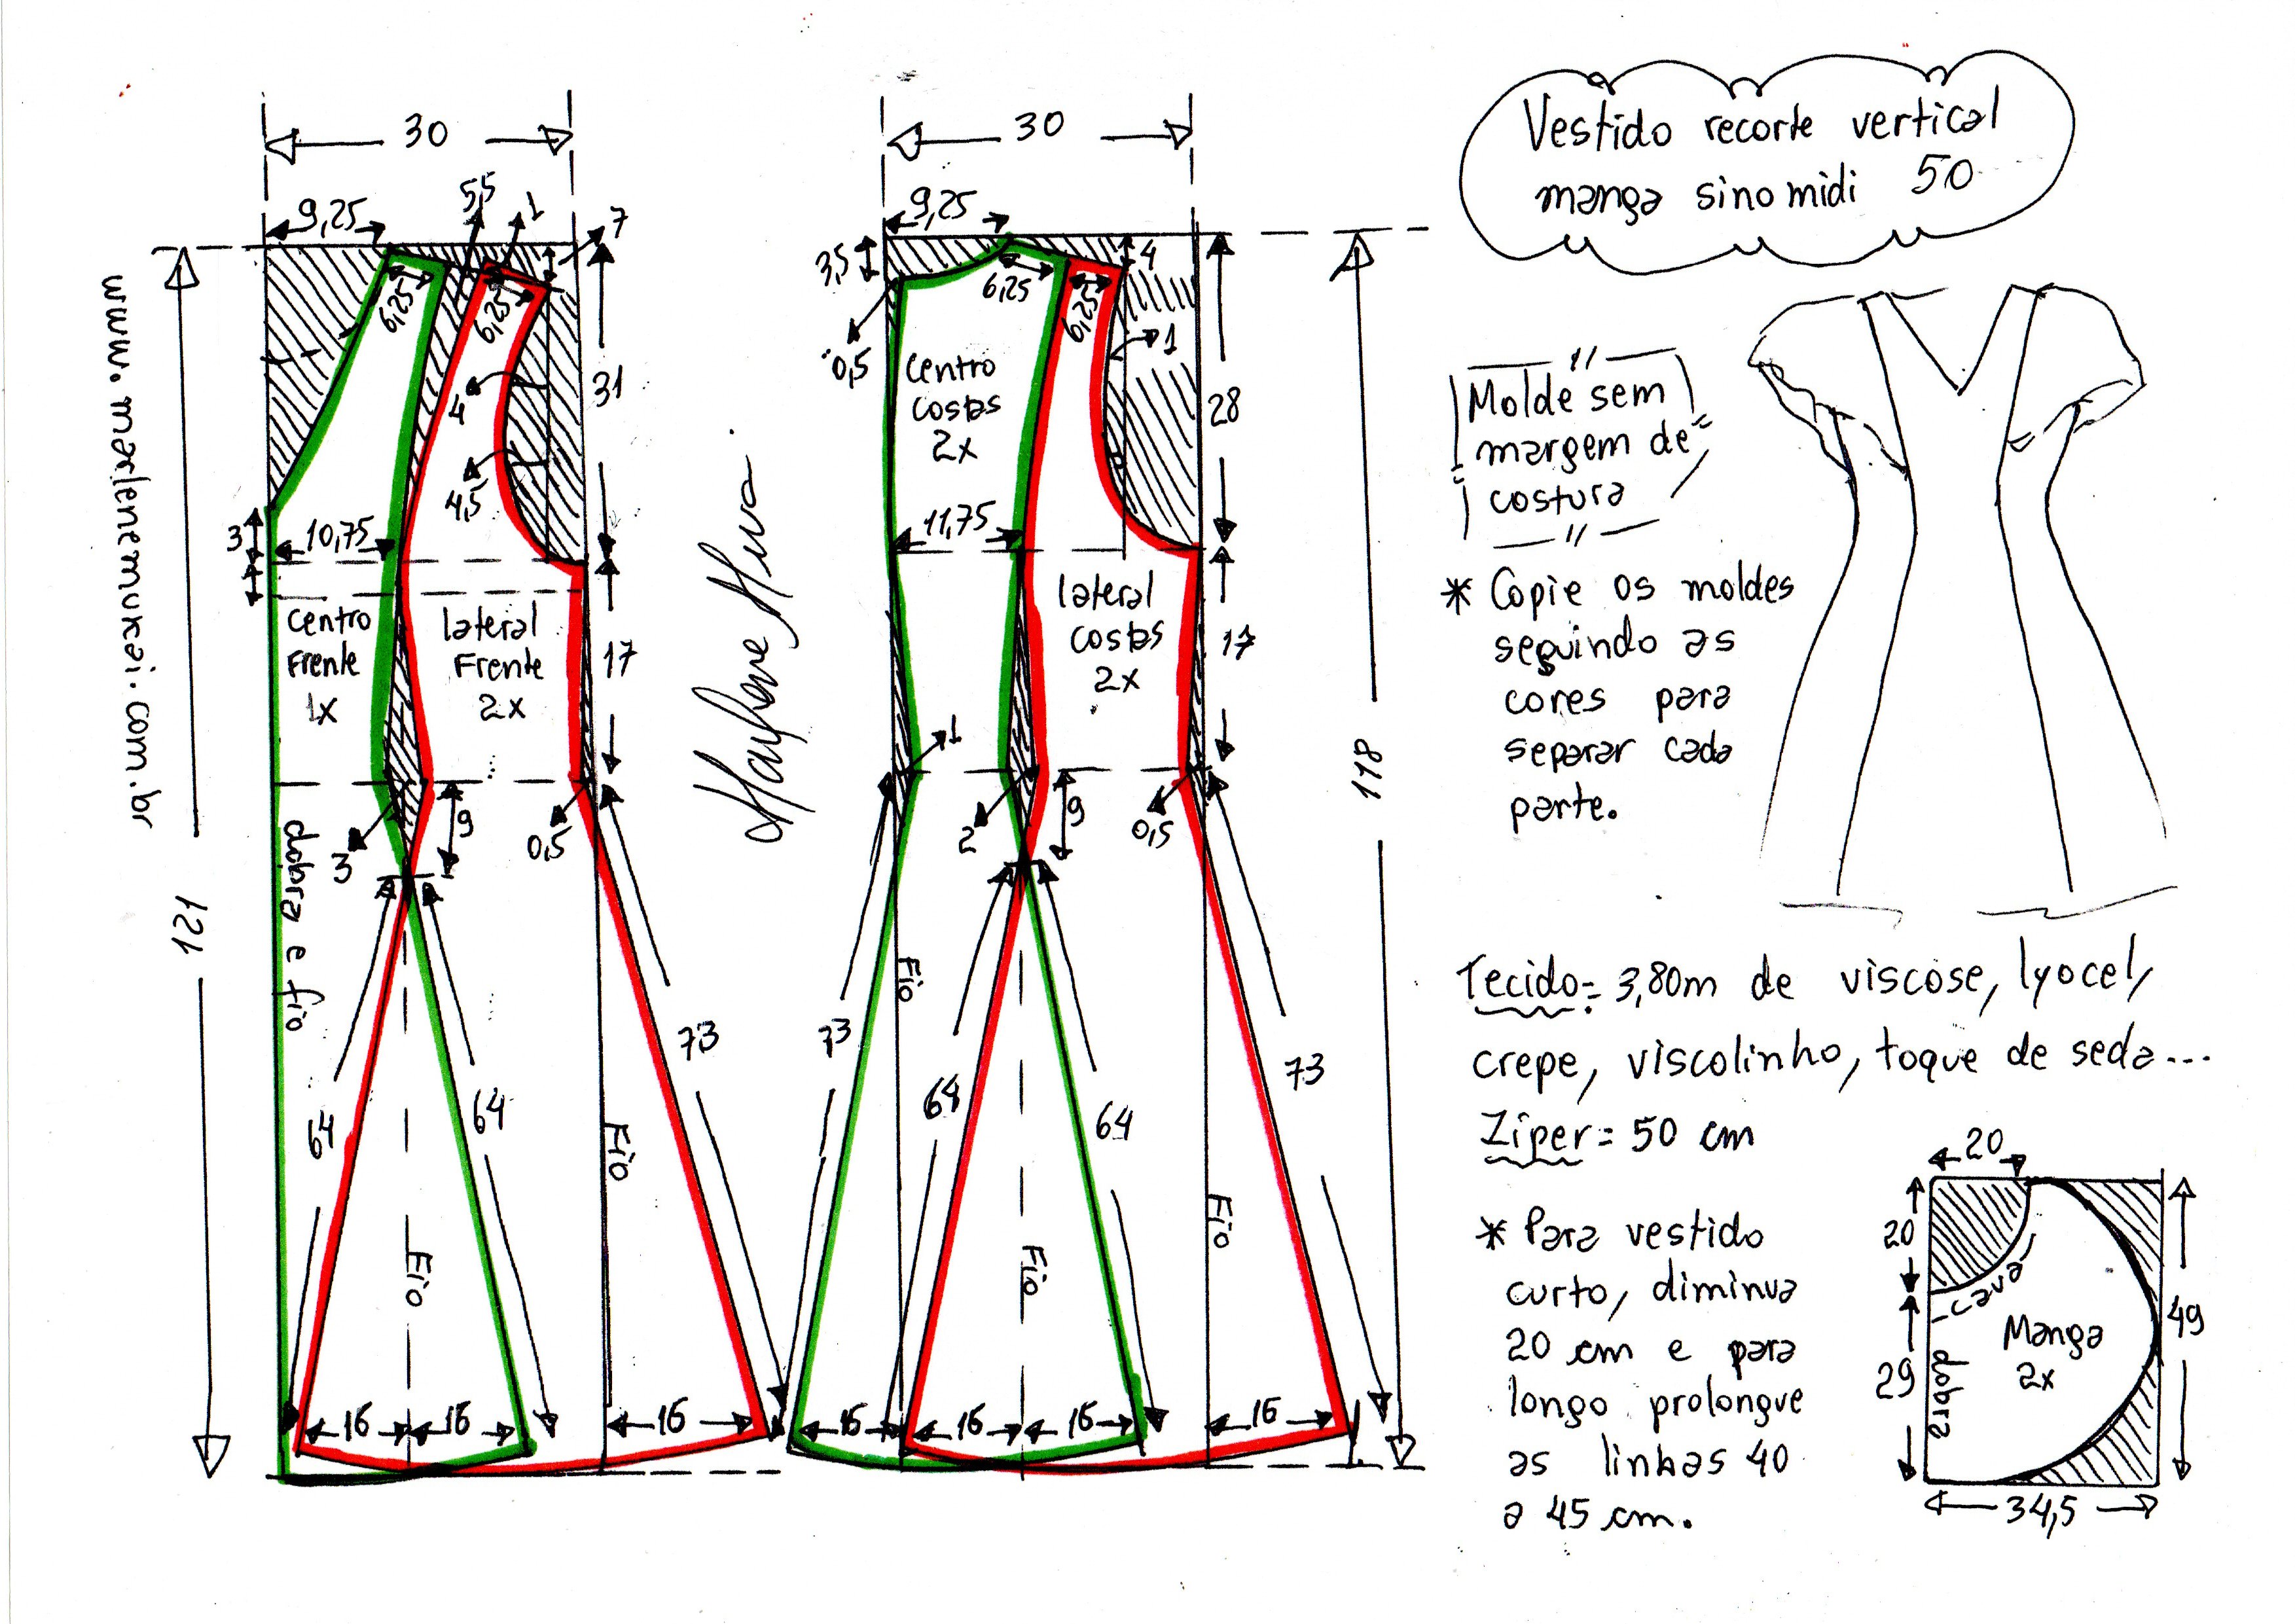 Vestido recorte vertical
manga sino midi 50
Molde sem
margem de
costura
* Copie os moldes
seguindo as
cores para
separar cada
parte.
Tecido= 3,80m de viscose, lyocel,
crepe, viscolinho, toque de seda...
Ziper= 50 cm
* Para vestido
curto, diminua
20 cm e para
longo prolongue
as linhas 40
a 45 cm.
www.marlenemukai.com.br
30
9,25
5,5
1
7
6,25
6,25
4
4,5
31
3
10,75
centro
Frente
1x
lateral
Frente
2x
17
3
9
0,5
dobra e fio
121
64
64
73
Fio
Fio
16
16
16
30
9,25
3,5
0,5
6,25
6,25
4
1
centro
costas
2x
28
11,75
lateral
costas
2x
17
1
2
9
0,5
118
Fio
73
64
64
73
Fio
Fio
16
16
16
16
20
20
cava
Manga
2x
29
dobra
49
34,5